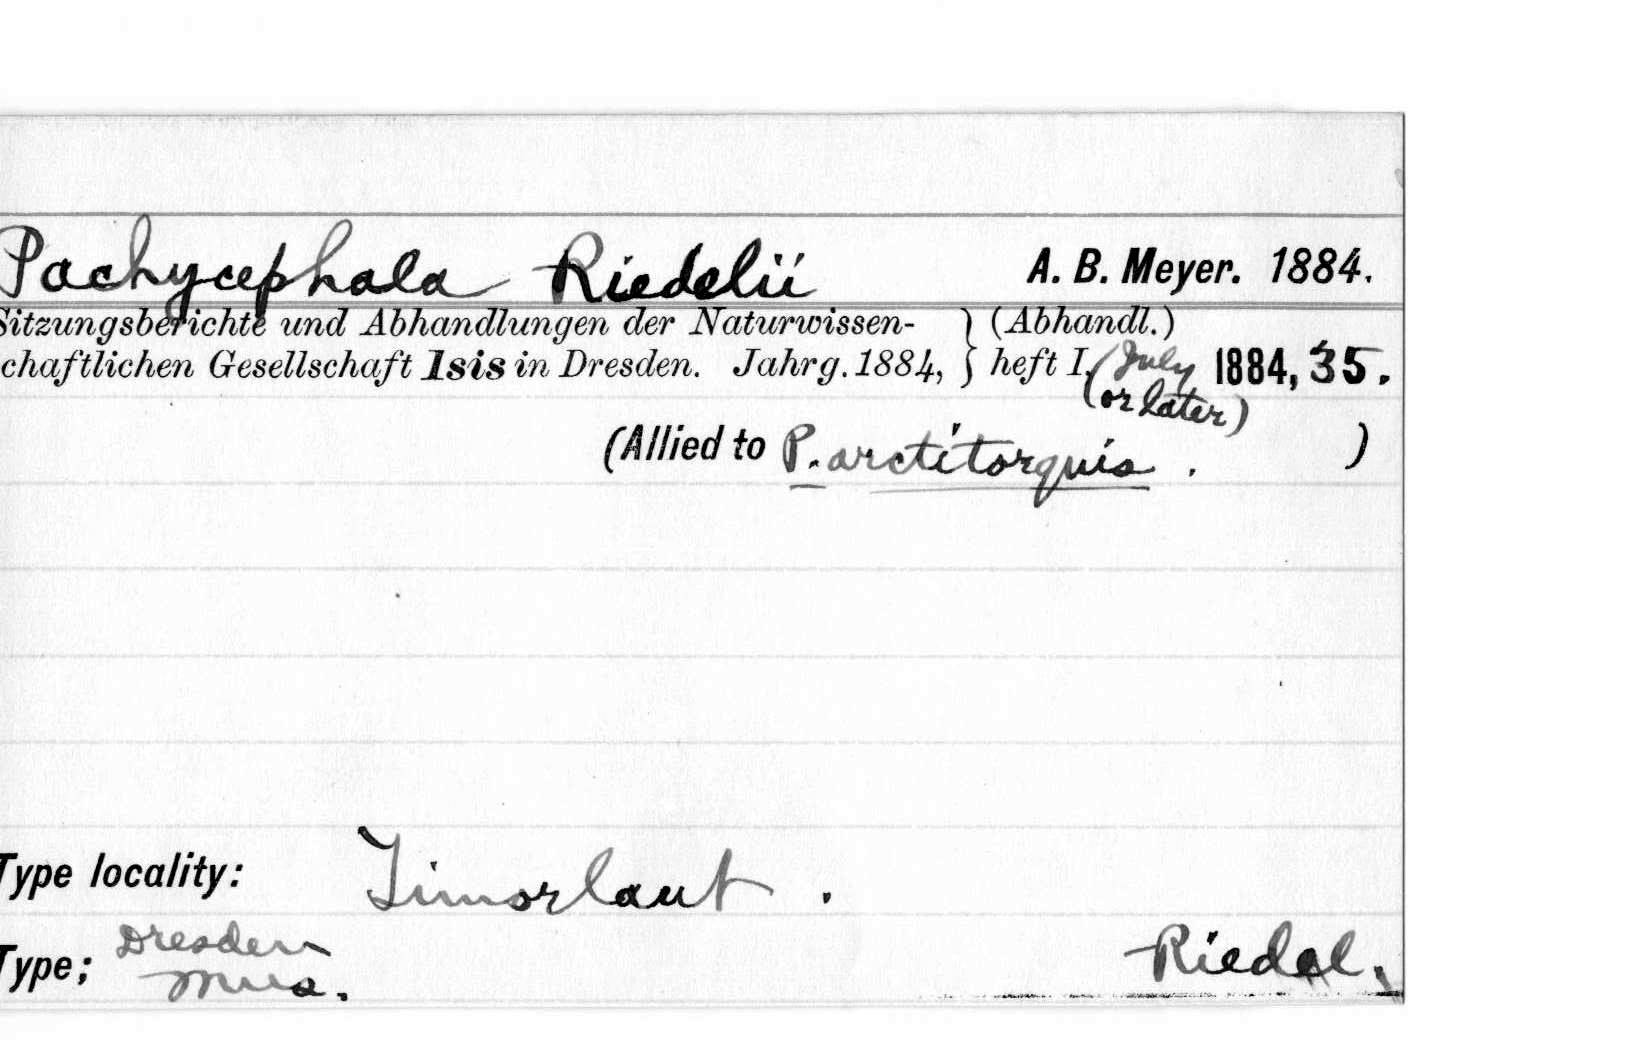 Pachycephala Riedelii A. B. Meyer. 1884.
Sitzungsberichte und Abhandlungen der Naturwissen- } (Abhandl.)
chaftlichen Gesellschaft Isis in Dresden. Jahrg. 1884, } heft I, (July 1884, 35.
(or later)
(Allied to P. arctitorquis . )
Type locality: Timorlaut .
Type; Dresden
Mus. Riedel.